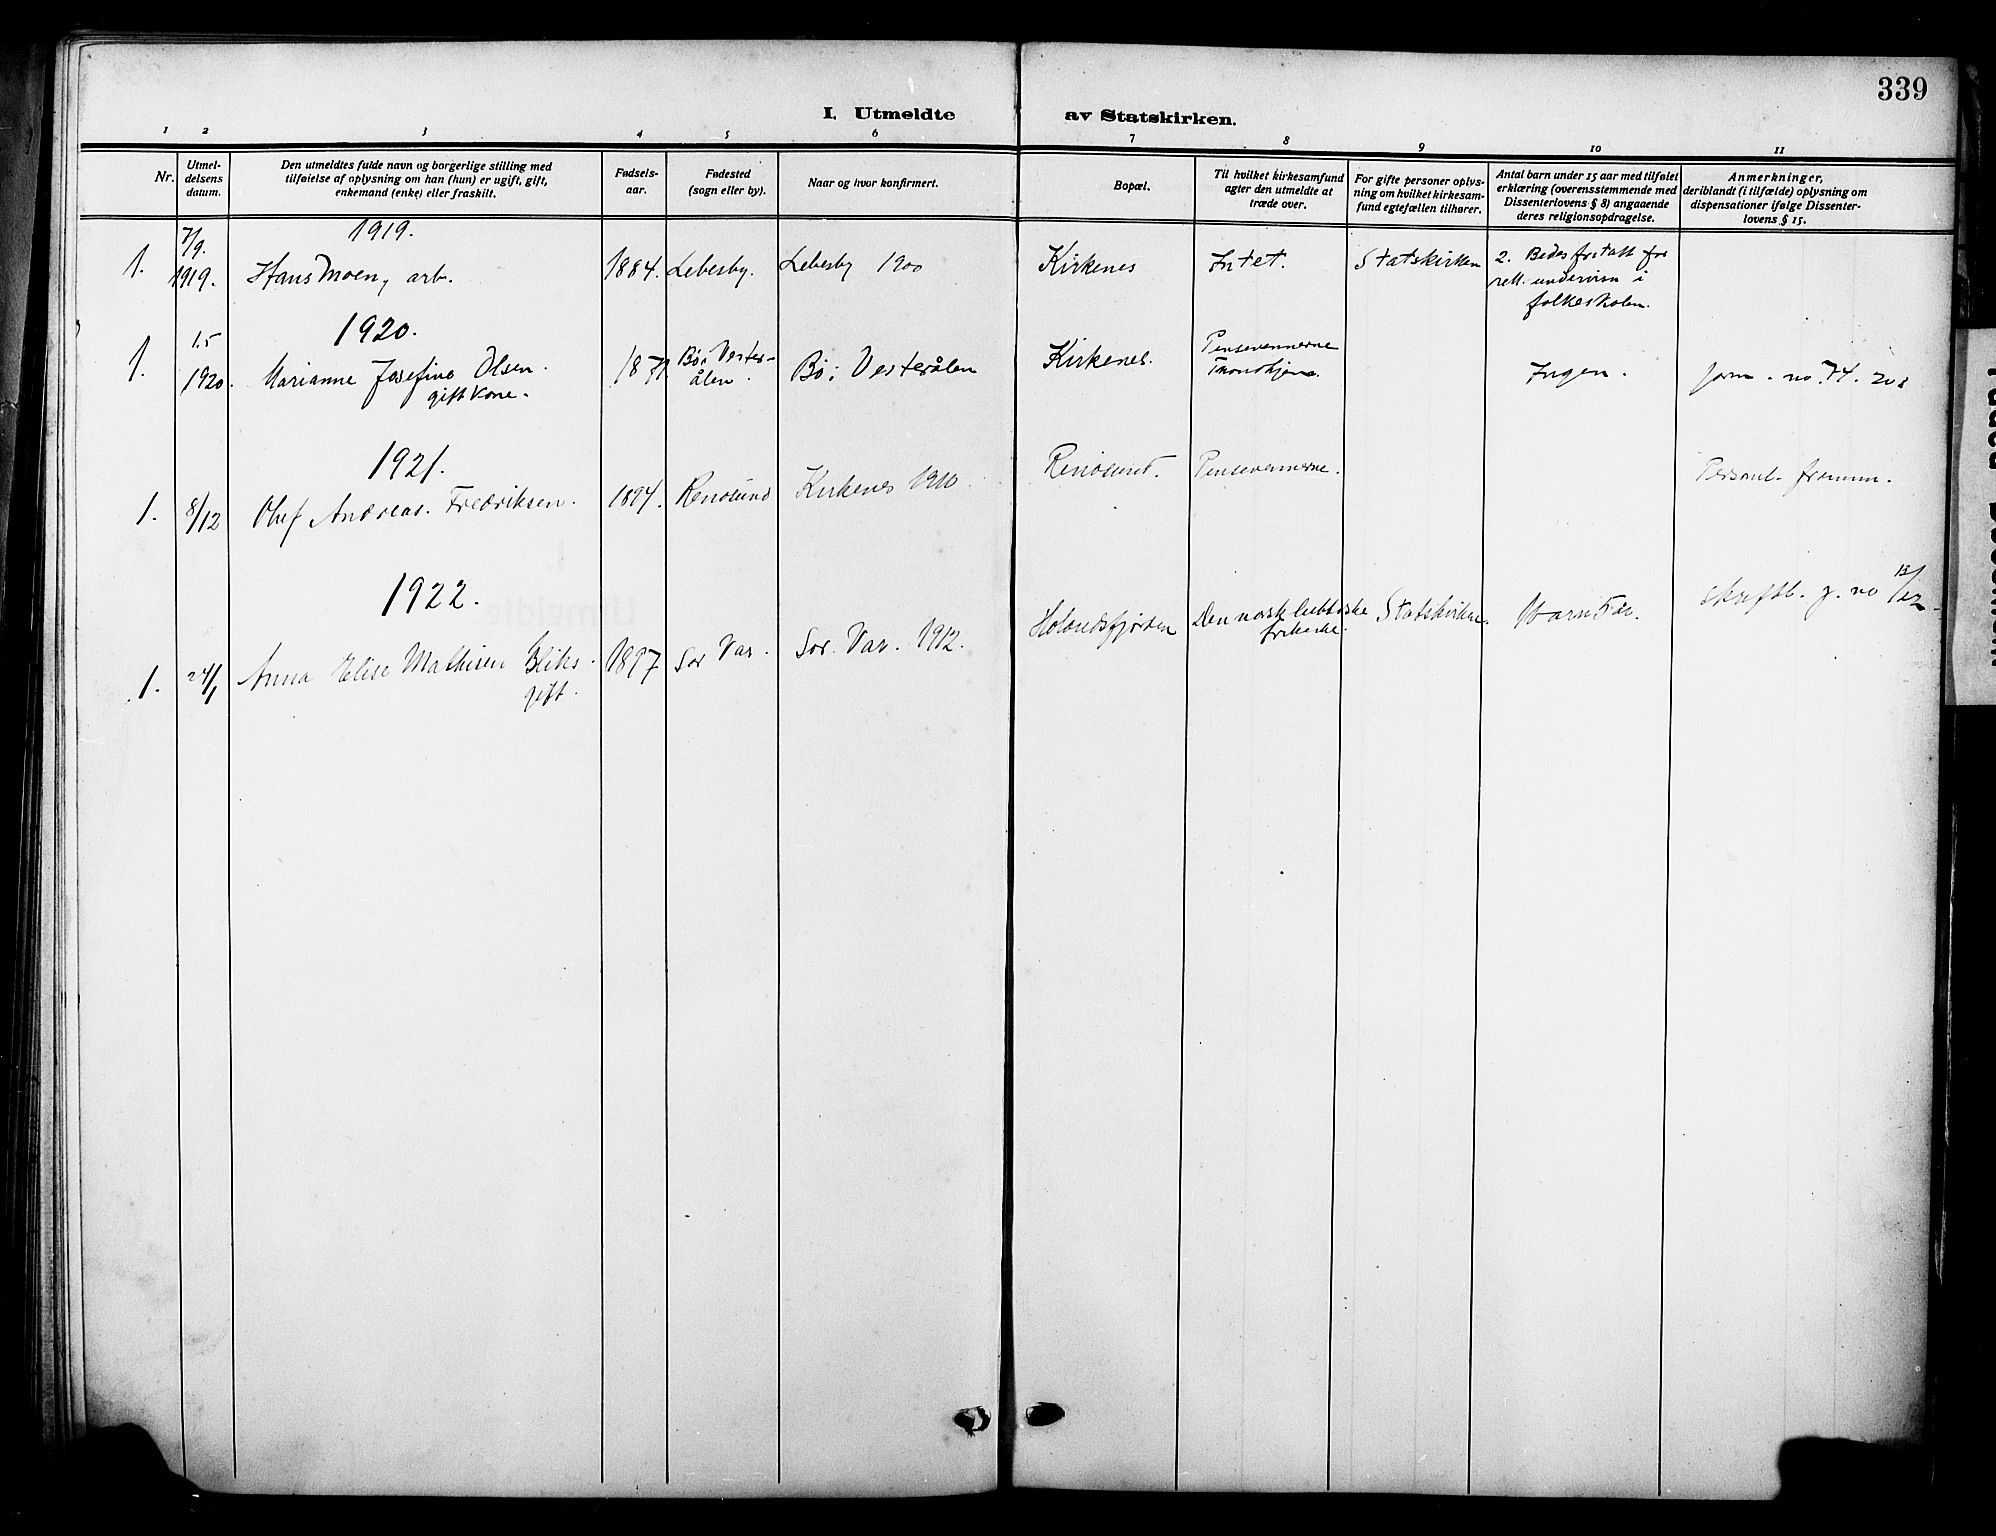 339
I. Utmeldte av Statskirken.
1 2 3 4 5 6 7 8 9 10 11
Nr.
Utmel-
delsens
datum.
Den utmeldtes fulde navn og borgerlige stilling med
tilføielse af oplysning om han (hun) er ugift, gift,
enkemand (enke) eller fraskilt.
Fødsels-
aar.
Fødested
(sogn eller by).
Naar og hvor konfirmert.
Bopæl.
Til hvilket kirkesamfund
agter den utmeldte at
træde over.
For gifte personer oplys-
ning om hvilket kirkesam-
fund egtefællen tilhører.
Antal barn under 15 aar med tilføiet
erklæring (overensstemmende med
Dissenterlovens § 8) angaaende
deres religionsopdragelse.
Anmerkninger,
deriblandt (i tilfælde) oplysning om
dispensationer ifølge Dissenter-
lovens § 15.
1919.
1. 7/9. 1919. Hans Moen, arb. 1884. Lebesby. Lebesby 1900 Kirkenes Intet. Statskirken 2. Bedes fritatt for
rel. undervisn i
folkeskolen.
1920.
1. 1.5 1920. Marianne Josefine Olsen. 1871. Bø i Vester-
ålen. Bø i Vesterålen Kirkenes. Pinsevennerne
Trondhjem. Ingen. journ. no. 74. 20
gift kone.
1921.
1. 8/12 Oluf Andreas Fredriksen. 1894. Renøsund Kirkenes 1910. Renøsund. Pinsevennerne. Personl. fremm.
1922.
1. 24/1 Anna Elise Mathisen Bliks. 1897 Sør Var. Sør. Var. 1912. Holmfjorden Den norske lutherske
frikirke. Statskirken. Skriftl. j. no 13/22
gift.